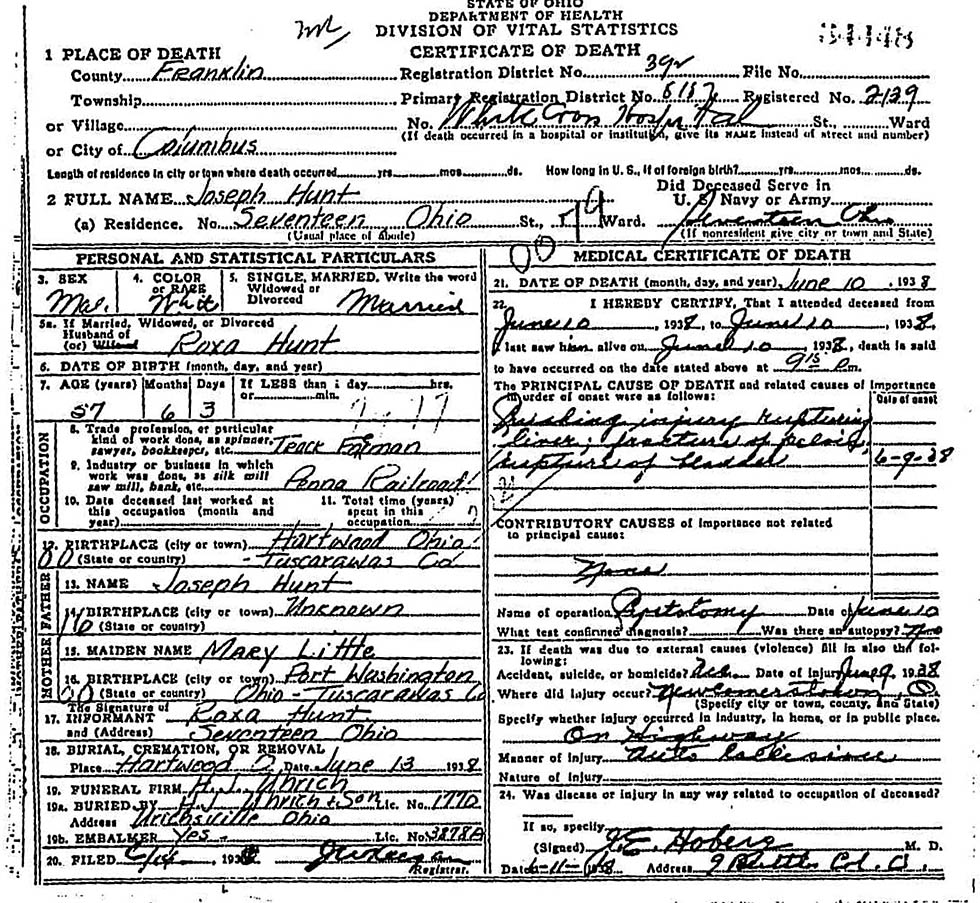 STATE OF OHIO
DEPARTMENT OF HEALTH
DIVISION OF VITAL STATISTICS
CERTIFICATE OF DEATH
1 PLACE OF DEATH
County Franklin Registration District No. 392 File No.
Township Primary Registration District No. 8187 Registered No. 2139
or Village No. White Cross Hospital St., Ward
(If death occurred in a hospital or institution, give its NAME instead of street and number)
or City of Columbus
Length of residence in city or town where death occurred yrs. mos. ds. How long in U. S., if of foreign birth? yrs. mos. ds.
2 FULL NAME Joseph Hunt Did Deceased Serve in U. S. Navy or Army
(a) Residence. No. Seventeen Ohio St., Ward. Seventeen Ohio
(Usual place of abode) (If nonresident give city or town and State)
PERSONAL AND STATISTICAL PARTICULARS
3. SEX Mal. 4. COLOR or RACE White 5. SINGLE, MARRIED, Write the word Widowed or Divorced Married
5a. If Married, Widowed, or Divorced
Husband of (or) Wife of Roxa Hunt
6. DATE OF BIRTH (month, day, and year)
7. AGE (years) 57 Months 6 Days 3 If LESS than 1 day hrs. or min.
OCCUPATION
8. Trade, profession, or particular kind of work done, as spinner, sawyer, bookkeeper, etc. Track Forman
9. Industry or business in which work was done, as silk mill saw mill, bank, etc. Penna Railroad
10. Date deceased last worked at this occupation (month and year) 11. Total time (years) spent in this occupation
12. BIRTHPLACE (city or town) Hartwood Ohio
(State or country) - Tuscarawas Co
FATHER
13. NAME Joseph Hunt
14. BIRTHPLACE (city or town) Unknown
(State or country)
MOTHER
15. MAIDEN NAME Mary Little
16. BIRTHPLACE (city or town) Port Washington
(State or country) Ohio - Tuscarawas Co
17. The Signature of INFORMANT Roxa Hunt
and (Address) Seventeen Ohio
18. BURIAL, CREMATION, OR REMOVAL
Place Hartwood O. Date June 13 1938
19. FUNERAL FIRM H. J. Uhrich
19a. BURIED BY H. J. Uhrich & Son Lic. No. 1770
Address Urichsville Ohio
19b. EMBALMER Yes - Lic. No. 3278A
20. FILED 193 Registrar.
MEDICAL CERTIFICATE OF DEATH
21. DATE OF DEATH (month, day, and year) June 10 1938
22. I HEREBY CERTIFY, That I attended deceased from
June 10, 1938, to June 10, 1938,
I last saw him alive on June 10, 1938, death is said
to have occurred on the date stated above at 9 15 P m.
The PRINCIPAL CAUSE OF DEATH and related causes of importance in order of onset were as follows: Date of onset
Crushing injury rupturing
liver; fracture of pelvis,
rupture of bladder 6-9-38
CONTRIBUTORY CAUSES of importance not related to principal cause:
None
Name of operation Cystotomy Date of June 10
What test confirmed diagnosis? Was there an autopsy? No
23. If death was due to external causes (violence) fill in also the following:
Accident, suicide, or homicide? Acc. Date of injury June 9, 1938
Where did injury occur? Newcomerstown, O
(Specify city or town, county, and State)
Specify whether injury occurred in industry, in home, or in public place.
On Highway
Manner of injury Auto
Nature of injury
24. Was disease or injury in any way related to occupation of deceased?
If so, specify
(Signed) J. E. Hoberg M. D.
Date 6-11-1938 Address 9 Buttles Col. O.